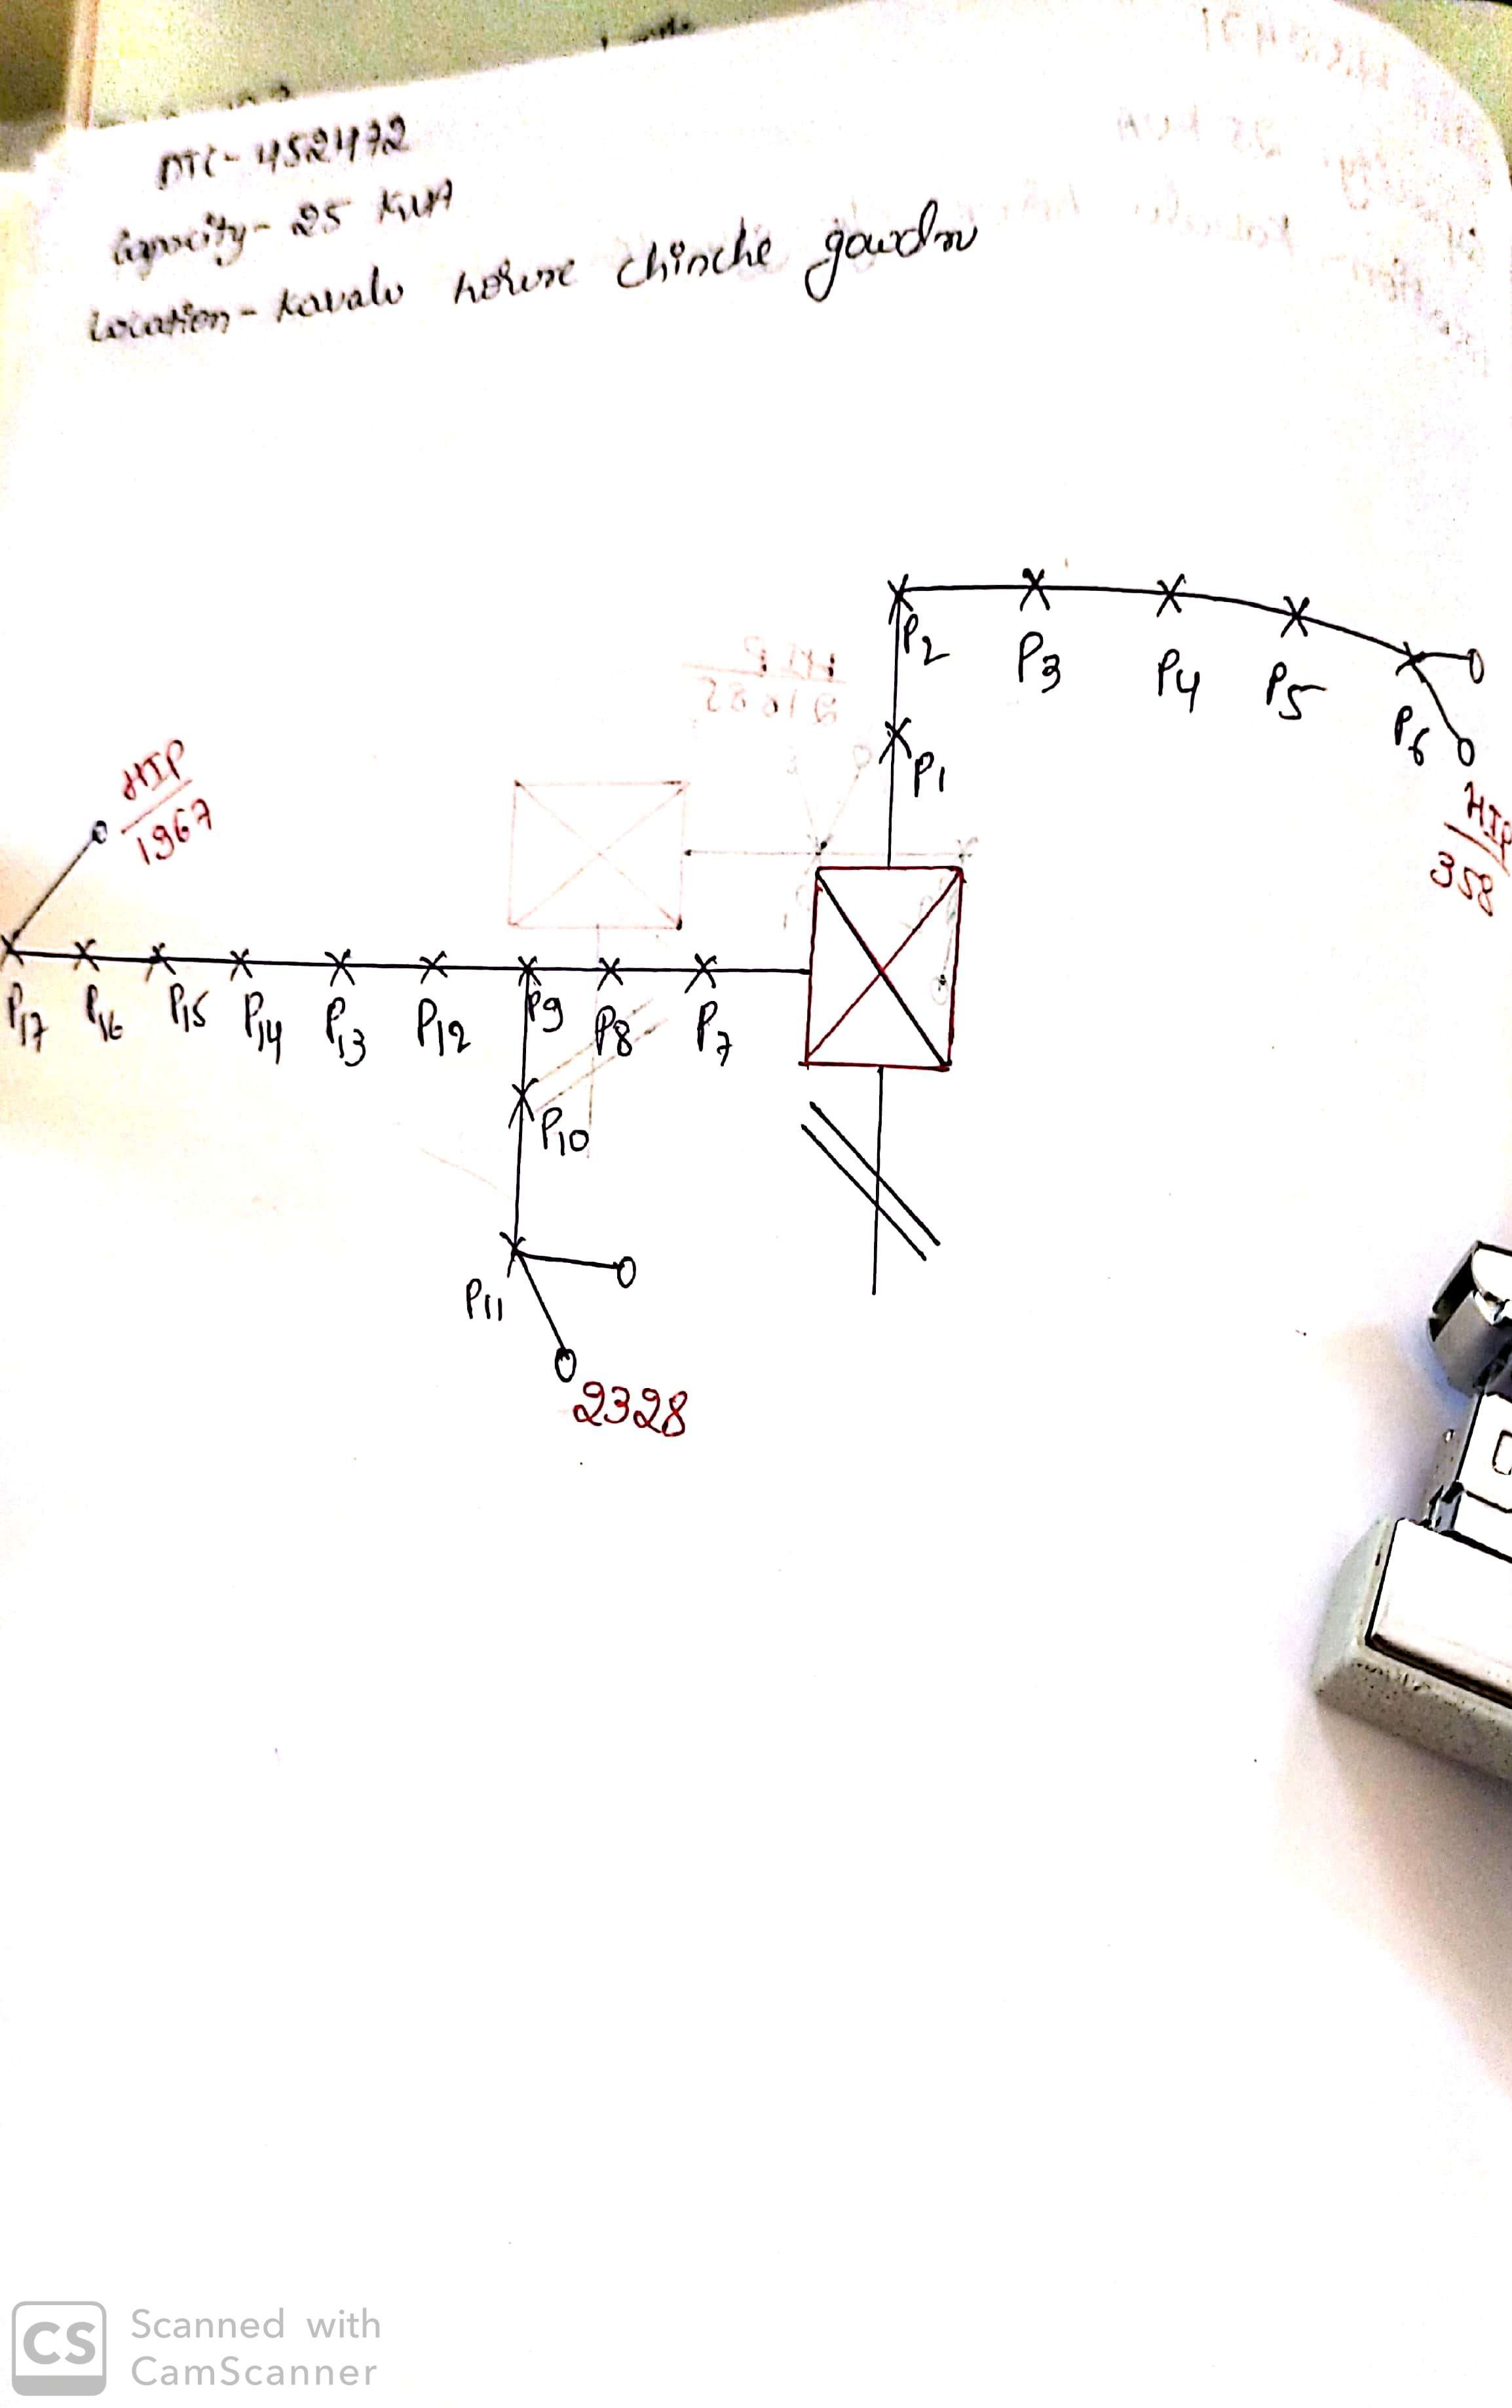 DTC- 452472
Capacity- 25 KVA
Location- Kavalu house chinche gowdru
P2
P3
P4
P5
P6
P1
HIP
358
HIP
1967
P17
P16
P15
P14
P13
P12
P9
P8
P7
P10
P11
2328
CS
Scanned with
CamScanner